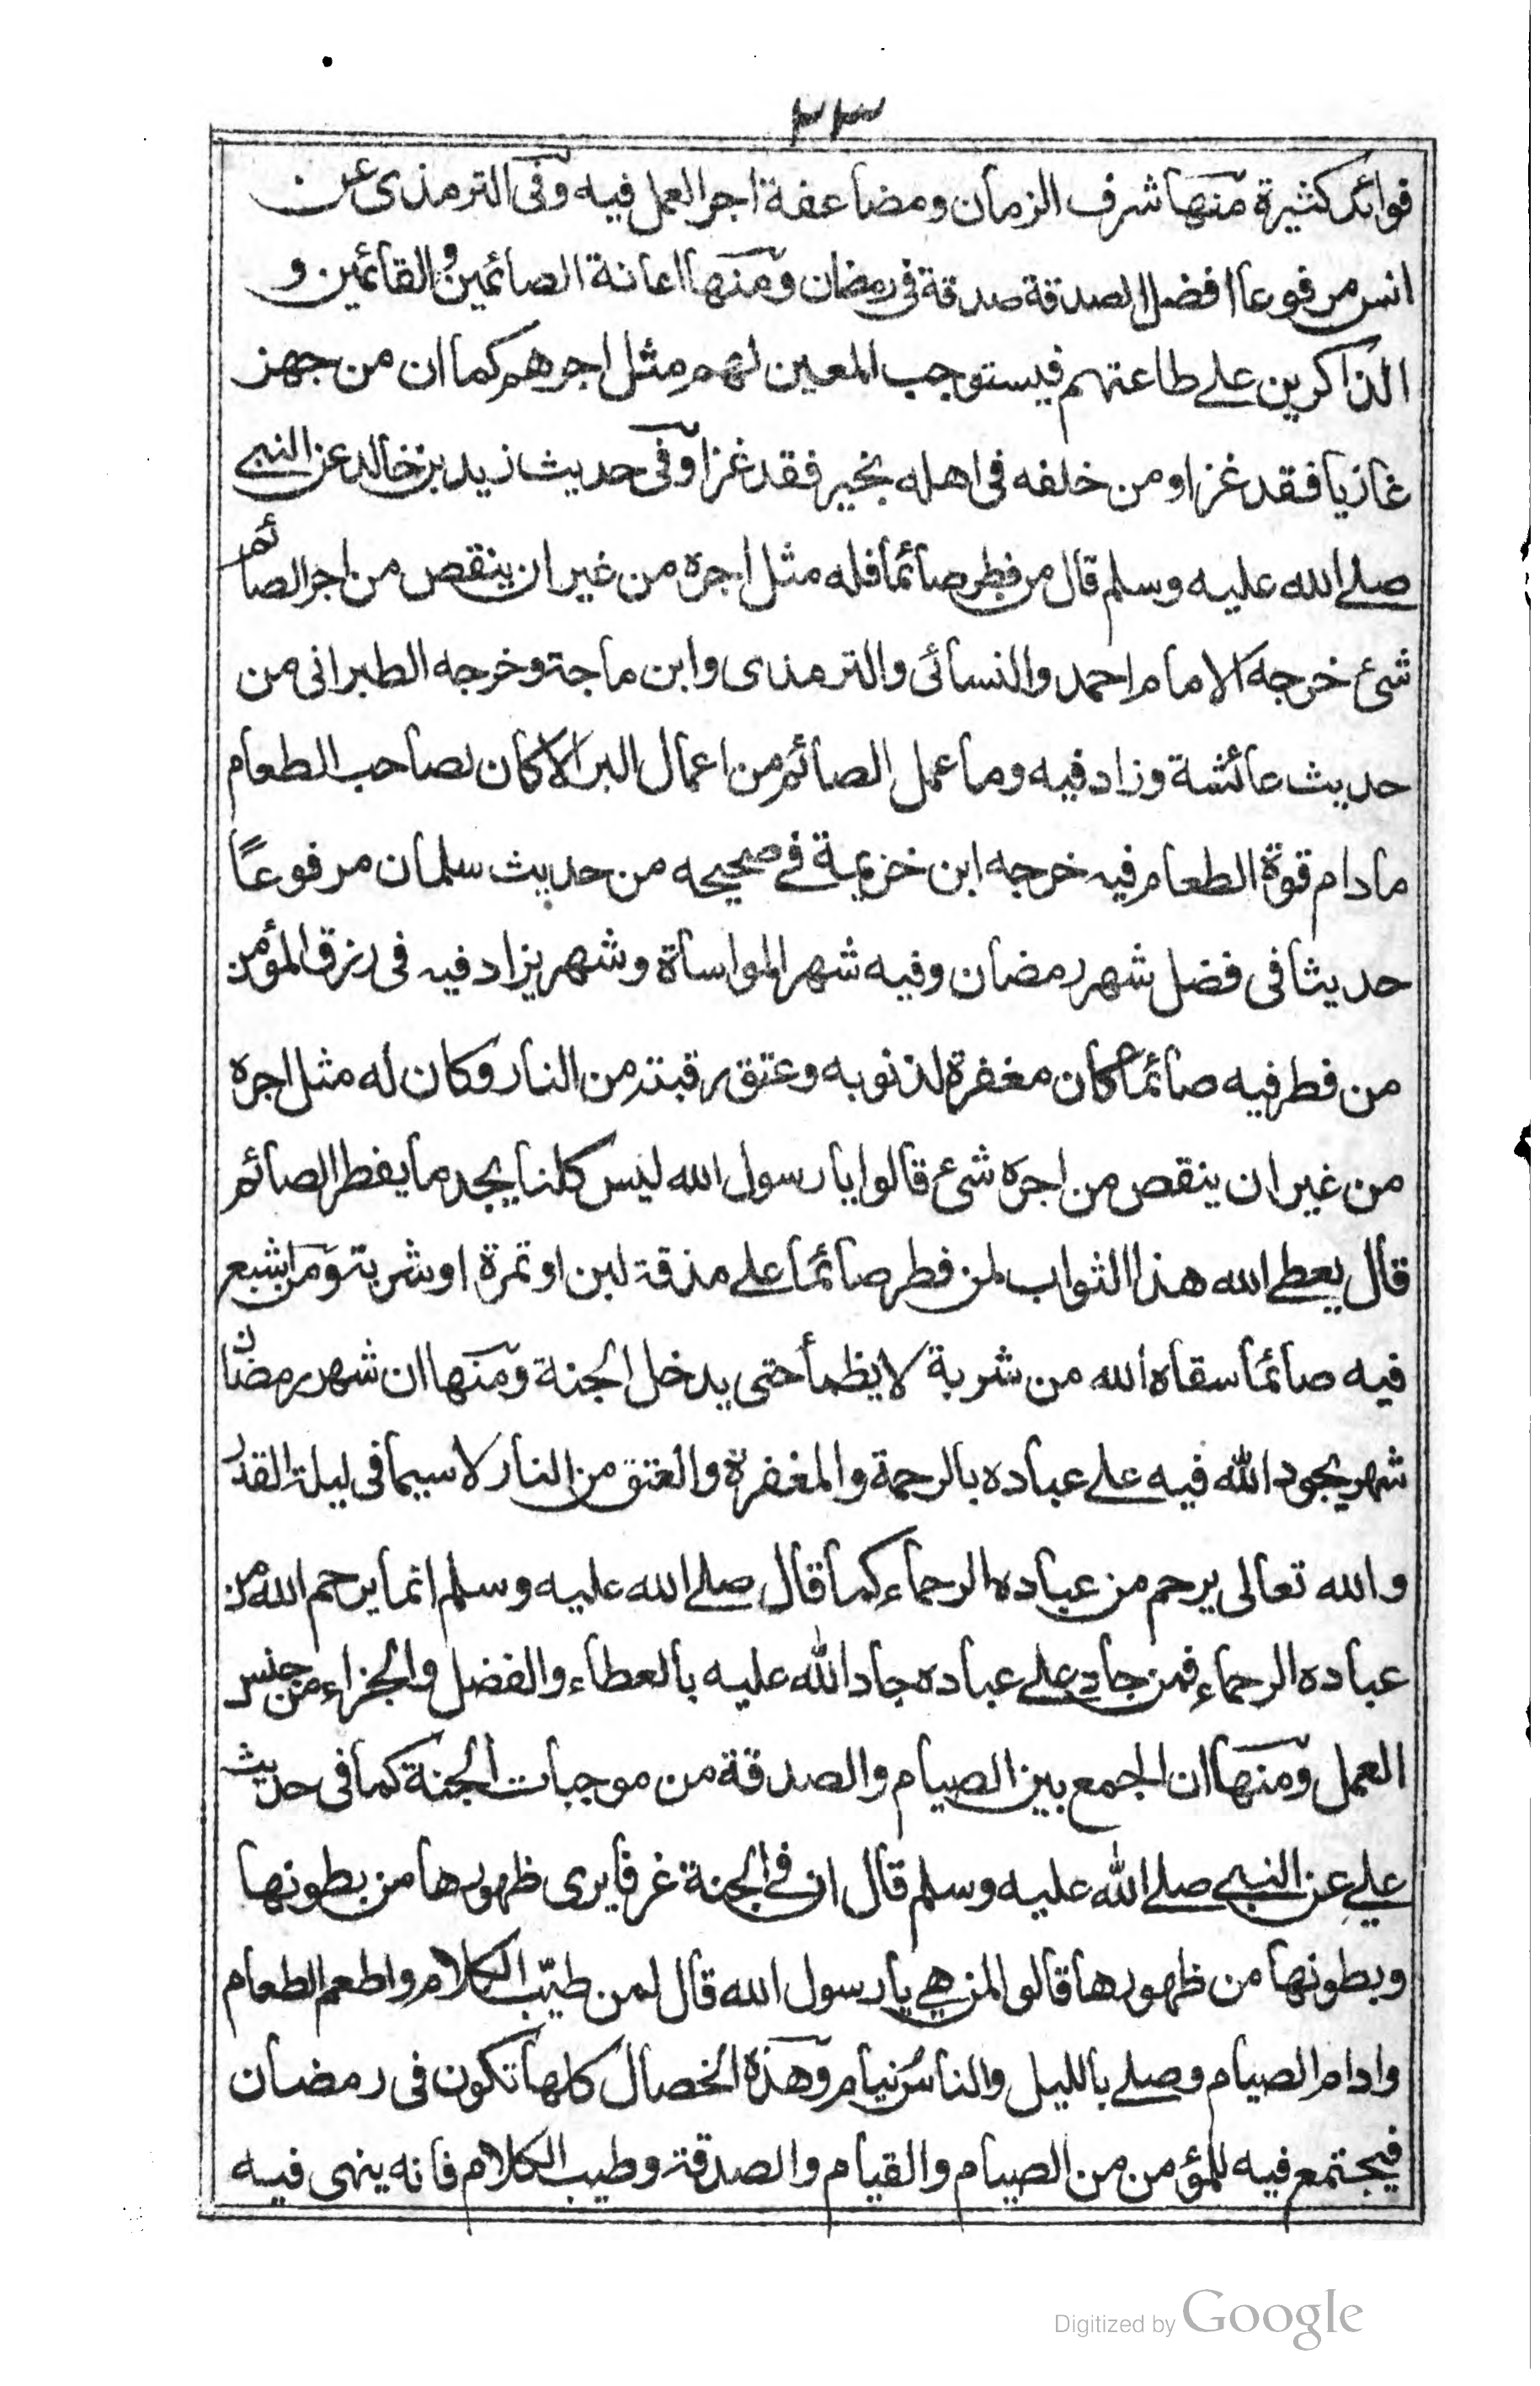 ٢٣
فوائد كثيرة منها شرف الزمان ومضاعفة اجر العمل فيه وفى الترمذى عن
انس مرفوعا افضل الصدقة صدقة فى رمضان ومنها اعانة الصائمين والقائمين و
الذاكرين على طاعتهم فيستوجب المعين لهم مثل اجرهم كما ان من جهز
غازيا فقد غزا ومن خلفه فى اهله بخير فقد غزا وفى حديث زيد بن خالد عن النبى
صلى الله عليه وسلم قال من فطر صائما فله مثل اجره من غير ان ينقص من اجر الصائم
شئ خرجه الامام احمد والنسائى والترمذى وابن ماجة وخرجه الطبرانى من
حديث عائشة وزاد فيه وما عمل الصائم من اعمال البر الا كان لصاحب الطعام
ما دام قوة الطعام فيه خرجه ابن خزيمة فى صحيحه من حديث سلمان مرفوعًا
حديثا فى فضل شهر رمضان وفيه شهر المواساة وشهر يزاد فيه فى رزق المؤمن
من فطر فيه صائما كان مغفرة لذنوبه وعتق رقبته من النار وكان له مثل اجره
من غير ان ينقص من اجره شئ قالوا يا رسول الله ليس كلنا يجد ما يفطر الصائم
قال يعطى الله هذا الثواب لمن فطر صائما على مذقة لبن او تمرة او شربة ومن اشبع
فيه صائما سقاه الله من شربة لا يظمأ حتى يدخل الجنة ومنها ان شهر رمضان
شهر يجود الله فيه على عباده بالرحمة والمغفرة والعتق من النار لا سيما فى ليلة القدر
والله تعالى يرحم من عباده الرحماء كما قال صلى الله عليه وسلم انما يرحم الله من
عباده الرحماء فمن جاد على عباده جاد الله عليه بالعطاء والفضل والجزاء من جنس
العمل ومنها ان الجمع بين الصيام والصدقة من موجبات الجنة كما فى حديث
على عن النبى صلى الله عليه وسلم قال ان فى الجنة غرفا يرى ظهورها من بطونها
وبطونها من ظهورها قالوا لمن هى يا رسول الله قال لمن طيّب الكلام واطعم الطعام
وادام الصيام وصلى بالليل والناس نيام وهذه الخصال كلها تكون فى رمضان
فيجتمع فيه للمؤمن من الصيام والقيام والصدقة وطيب الكلام فانه ينهى فيه
Digitized by Google